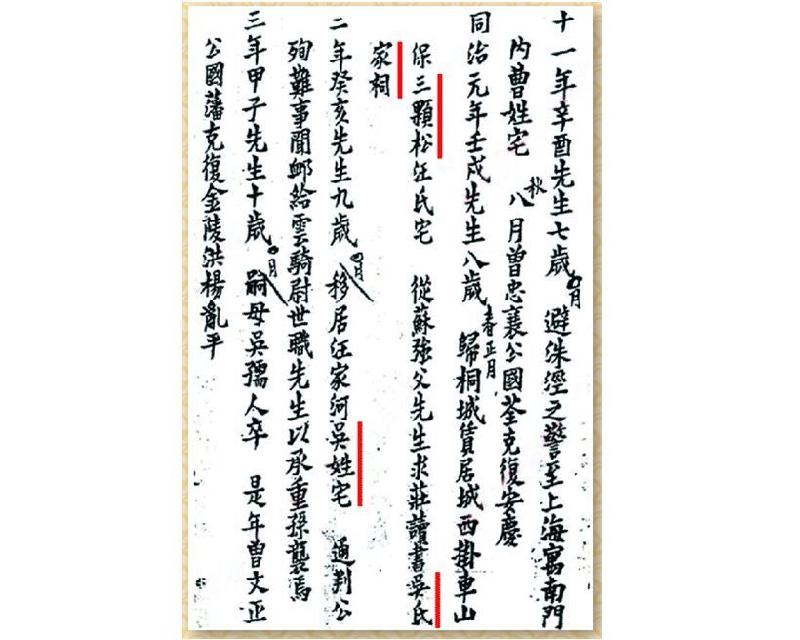 十一年辛酉先生七歲 〇月 避洙涇之警至上海寓南門
內曹姓宅 秋八月曾忠襄公國荃克復安慶
同治元年壬戌先生八歲 春正月 歸桐城賃居城西掛車山
保三顆松汪氏宅 從蘇強父先生求莊讀書吳氏
家祠
二年癸亥先生九歲 〇月 移居汪家河吳姓宅 通判公
殉難事聞卹給雲騎尉世職先生以承重孫襲焉
三年甲子先生十歲 〇月 嗣母吳孺人卒 是年曾文正
公國藩克復金陵洪楊亂平